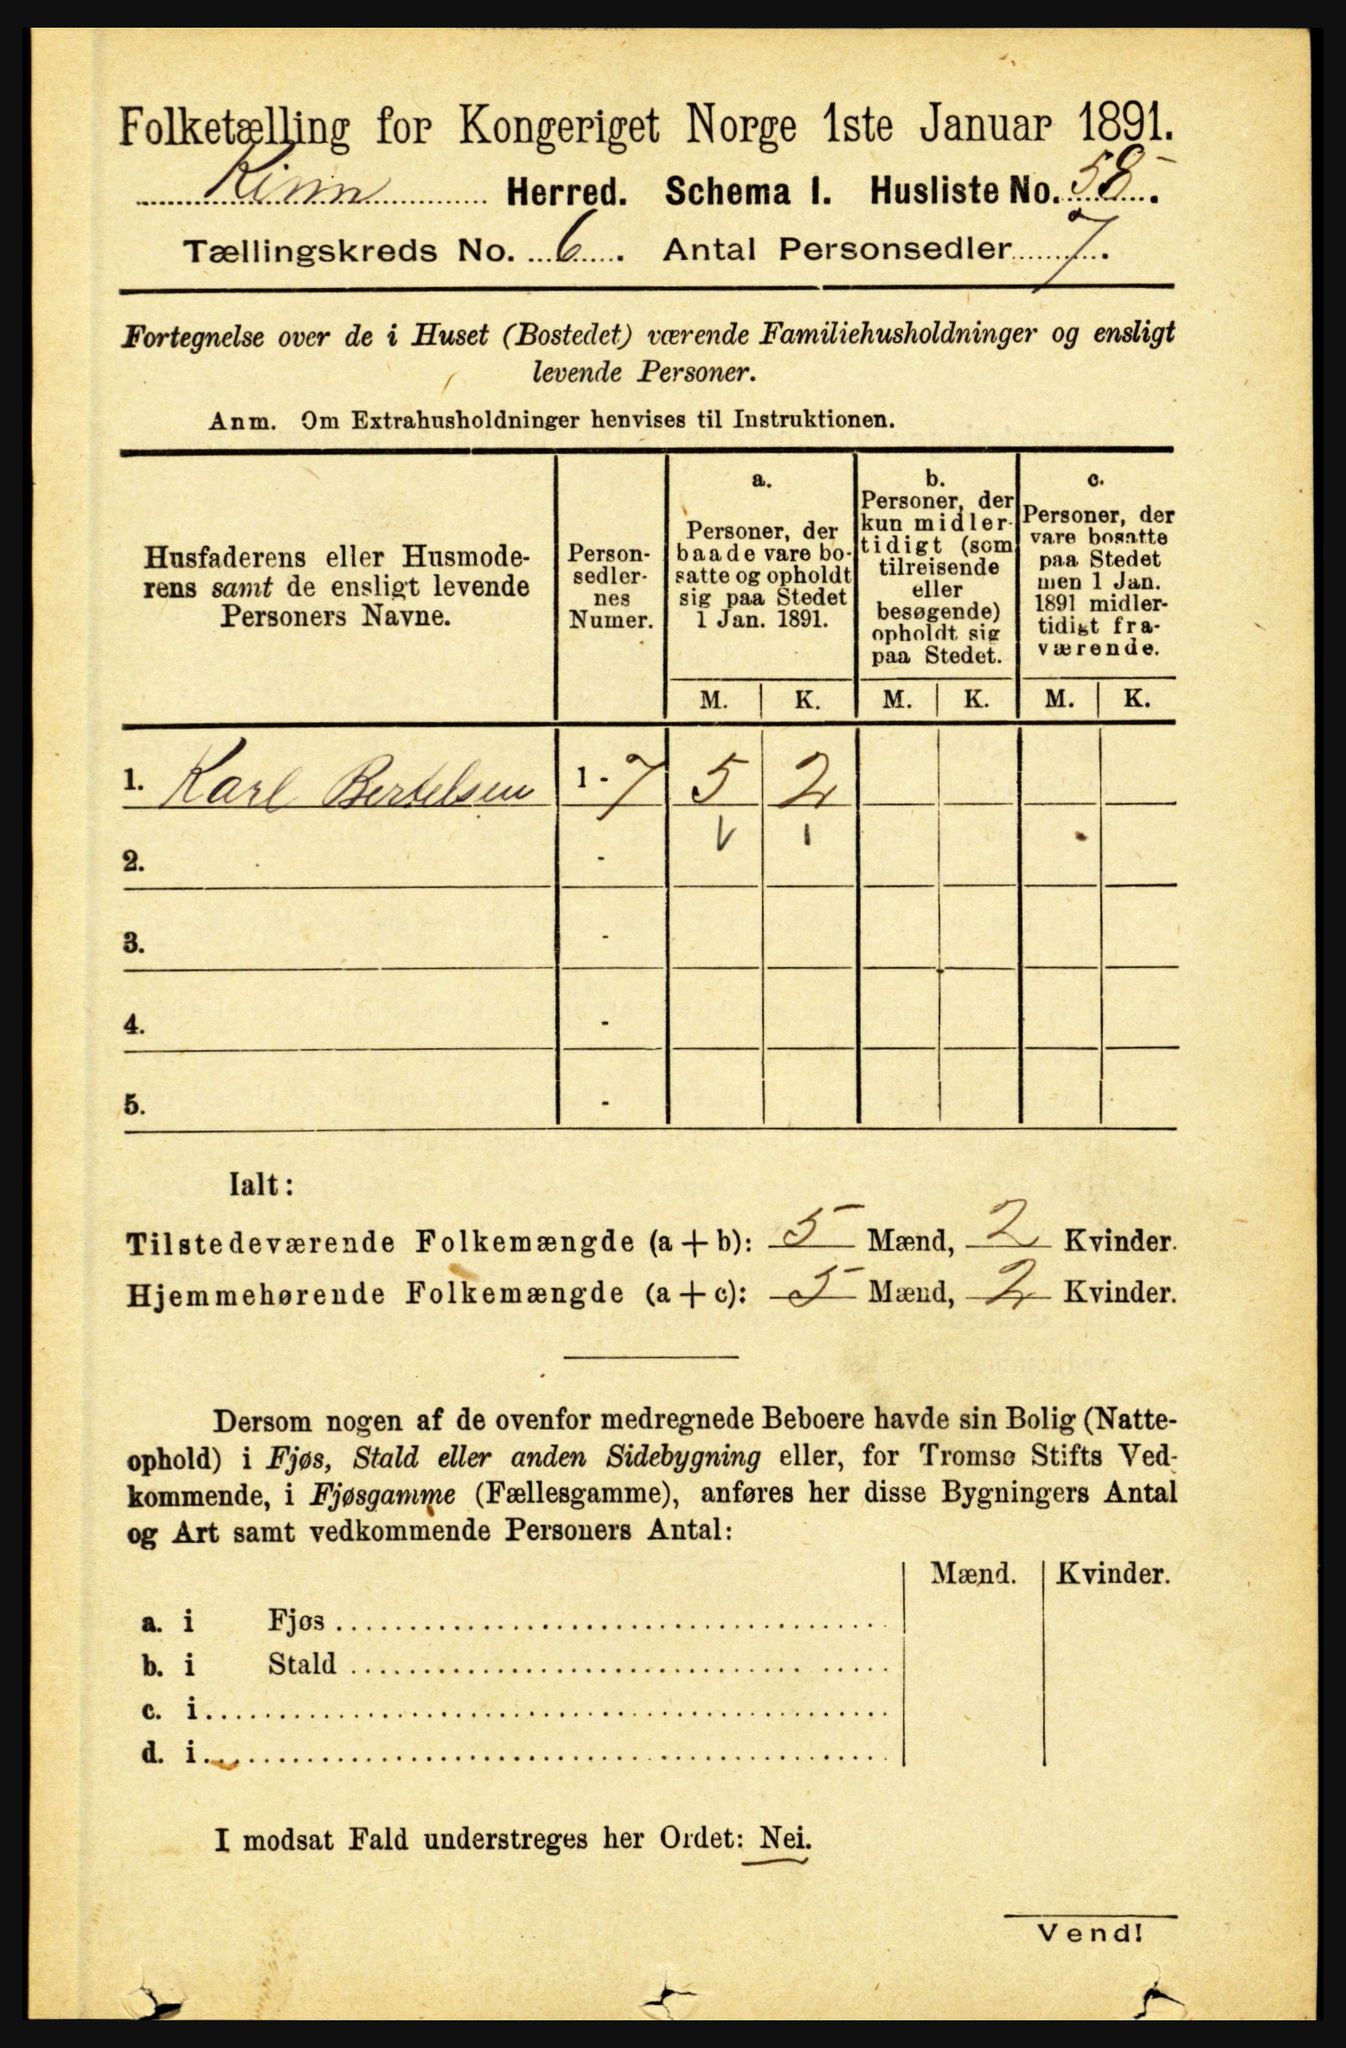 Folketælling for Kongeriget Norge 1ste Januar 1891.
Kinn Herred. Schema I. Husliste No. 58.
Tællingskreds No. 6. Antal Personsedler 7.
Fortegnelse over de i Huset (Bostedet) værende Familiehusholdninger og ensligt
levende Personer.
Anm. Om Extrahusholdninger henvises til Instruktionen.
Husfaderens eller Husmode-
rens samt de ensligt levende
Personers Navne.
Person-
sedler-
nes
Numer.
a.
Personer, der
baade vare bo-
satte og opholdt
sig paa Stedet
1 Jan. 1891.
b.
Personer, der
kun midler-
tidigt (som
tilreisende
eller
besøgende)
opholdt sig
paa Stedet.
c.
Personer, der
vare bosatte
paa Stedet
men 1 Jan.
1891 midler-
tidigt fra-
værende.
M. K. M. K. M. K.
1. Karl Bertelsen 1 - 7 5 2
2. -
3. -
4. -
5. -
Ialt:
Tilstedeværende Folkemængde (a + b): 5 Mænd, 2 Kvinder.
Hjemmehørende Folkemængde (a + c): 5 Mænd, 2 Kvinder.
Dersom nogen af de ovenfor medregnede Beboere havde sin Bolig (Natte-
ophold) i Fjøs, Stald eller anden Sidebygning eller, for Tromsø Stifts Ved-
kommende, i Fjøsgamme (Fællesgamme), anføres her disse Bygningers Antal
og Art samt vedkommende Personers Antal:
Mænd. Kvinder.
a. i Fjøs
b. i Stald
c. i
d. i
I modsat Fald understreges her Ordet: Nei.
Vend!